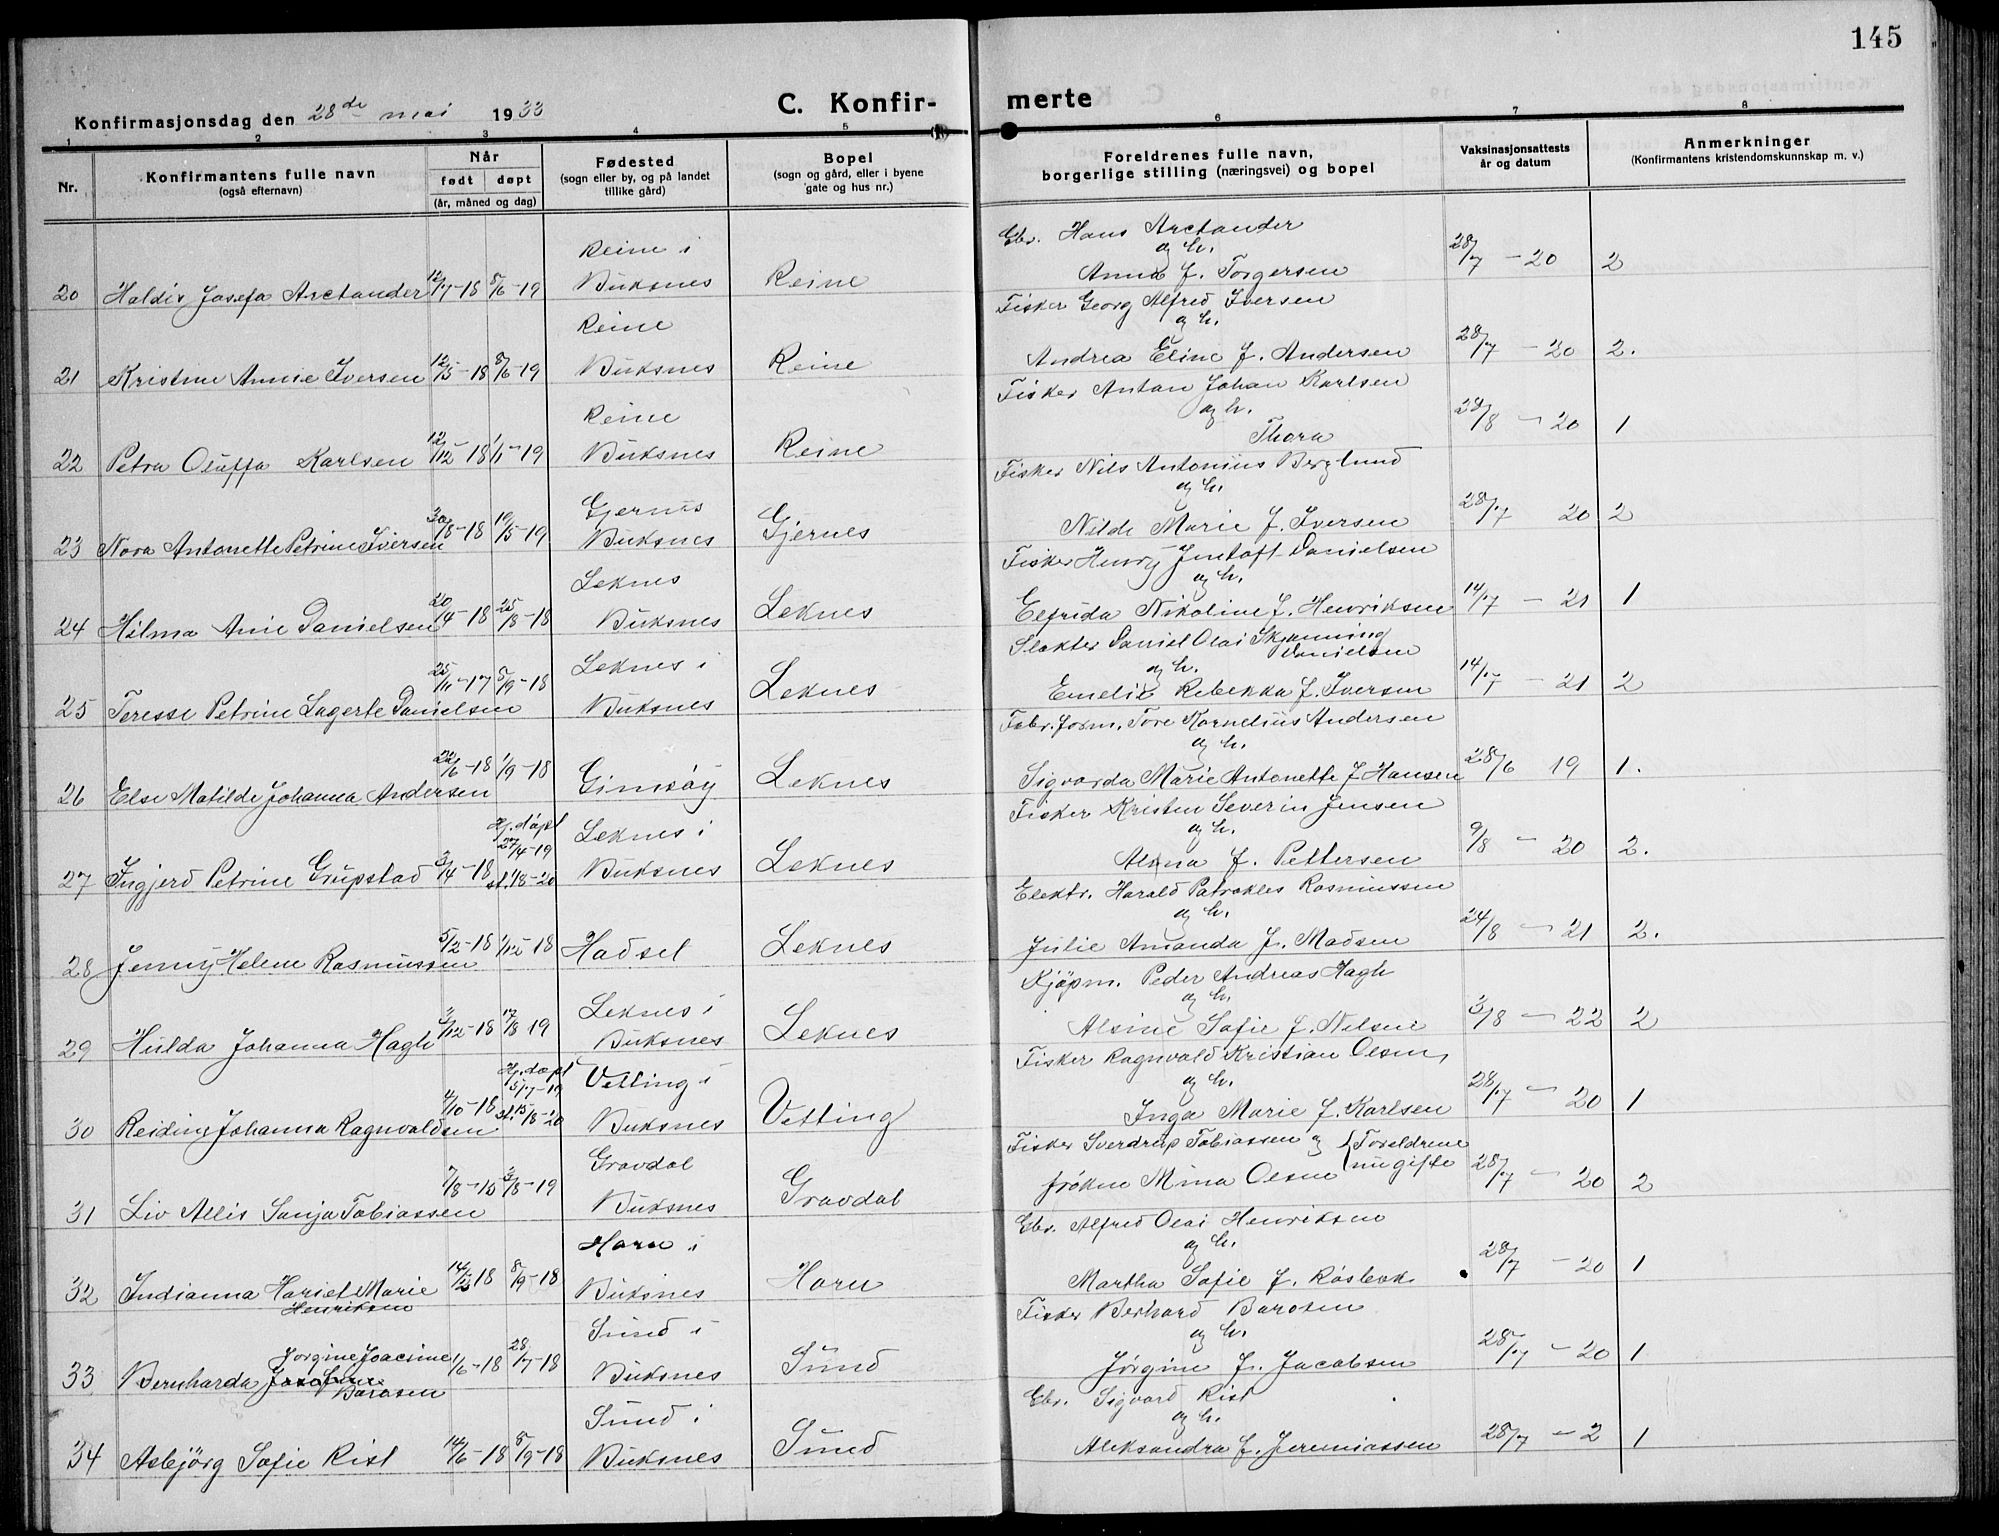 145
Konfirmasjonsdag den 28de mai 1933
C. Konfir-
merte
1 2 3 4 5 6 7 8
Nr.
Konfirmantens fulle navn
(også efternavn)
Når
født døpt
(år, måned og dag)
Fødested
(sogn eller by, og på landet
tillike gård)
Bopel
(sogn og gård, eller i byene
gate og hus nr.)
Foreldrenes fulle navn,
borgerlige stilling (næringsvei) og bopel
Vaksinasjonsattests
år og datum
Anmerkninger
(Konfirmantens kristendomskunnskap m. v.)
Reine i
Gbr. Hans Arctander
og h.
20 Haldis Josefa Arctander 12/7-18 8/6-19 Buksnes Reine Anna f. Torgersen 28/7 - 20 2
Reine
Fisker Georg Alfred Iversen
og h.
21 Kristine Annie Iversen 12/5-18 8/6-19 Buksnes Reine Andrea Eline f. Andersen 28/7 - 20 2.
Reine
Fisker Anton Johan Karlsen
og h.
22 Petra Oluffa Karlsen 12/12-18 1/1-19 Buksnes Reine Thora 28/8 - 20 1
Fisker Nils Antonius Berglund
og h.
Gjernes
23 Nora Antonette Petrine Iversen 30/8-18 19/5-19 Buksnes Gjernes Nilde Marie f. Iversen 28/7 20 2
Leknes
Fisker Henry Jentoft Danielsen
og h.
24 Hilma Anie Danielsen 20/4-18 25/8-18 Buksnes Leknes Elfrida Nikoline f. Henriksen 14/7 - 21 1
Leknes i
Slakter Daniel Olai Skjanning
Danielsen
og h.
25 Teresse Petrine Lagerte Danielsen 25/11-17 8/9-18 Buksnes Leknes Emelie Rebekka f. Iversen 14/7 - 21 2
Fabr. form. Tore Kornelius Andersen
og h.
26 Else Matilde Johanna Andersen 22/6-18 1/9-18 Gimsøy Leknes Sigvarda Marie Antonette f Hansen 28/6 19 1.
Hj. døpt
27/4-19
Leknes i
Fisker Kristen Severin Jensen
og h.
27 Ingjerd Petrine Grupstad 3/4-18 st. 1/8-20 Buksnes Leknes Alma f. Pettersen 9/8 - 20 2.
Elektr. Harald Patrokles Rasmussen
og h.
28 Jenny Helene Rasmussen 5/2-18 1/12-18 Hadsel Leknes Julie Amanda f. Madsen 24/8 - 21 2.
Leknes i
Kjøpm. Peder Andreas Hagh
og h.
29 Hulda Johanna Hagh 3/12-18 17/8 19 Buksnes Leknes Alsine Sofie f. Nilsen 3/8 - 22 2
Hj. døpt
5/7-19
Vetting i
Fisker Ragnvald Kristian Olsen
og h.
30 Reidine Johanna Ragnvaldsen 4/10-18 st. 15/8-20 Buksnes Vetting Inga Marie f. Karlsen 28/7 - 20 1
Gravdal
Fisker Sverdrup Tobiassen og { Foreldrene
ungifte
31 Liv Allis Sanja Tobiassen 7/8-18 3/8-19 Buksnes Gravdal frøken Mina Olsen 28/7 - 20 2
Horn i
Gbr. Alfred Olai Henriksen
og h.
32 Indianna Hariel Marie 8/9-18 Buksnes Horn Martha Sofie f. 28/7 - 20 1
Henriksen
Sund i
Fisker Berhard Barosen
og h.
Jorgine Joacime
33 Bernharda 1/6-18 28/7-18 Buksnes Sund Jørgine f. Jacobsen 28/7 - 20 1
Barosen
Sund i
Gbr. Sigvard Rist
og h.
34 Asbjørg Sofie Rist 14/6-18 8/9-18 Buksnes Sund Aleksandra f. Jeremiassen 28/7 - 2 1